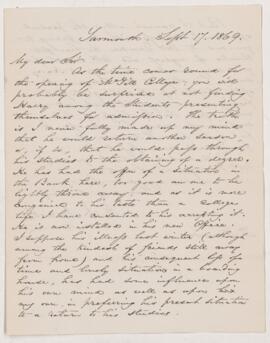 Yarmouth. Sept 17. 1869.
My dear Sir
As the time comes round for
the opening of McGill College, you will
probably be surprised at not finding
Harry among the students presenting
themselves for admission. The truth is
I never fully made up my mind
that he would return another season
or, if so, that he would pass through
his studies to the obtaining of a degree.
He has had the offer of a situation in
the Bank here, too good an one to be
lightly thrown away, and as it is more
congenial to his taste than a College
life I have consented to his accepting it.
He is now installed in his new Office.
I suppose his illness last winter (although
among the kindest of friends still away
from home) and his consequent loss of
time and lonely situation in a boarding
house, has had some influence upon
his own mind as well as upon
my own, in preferring his present situation
to a return to his studies.